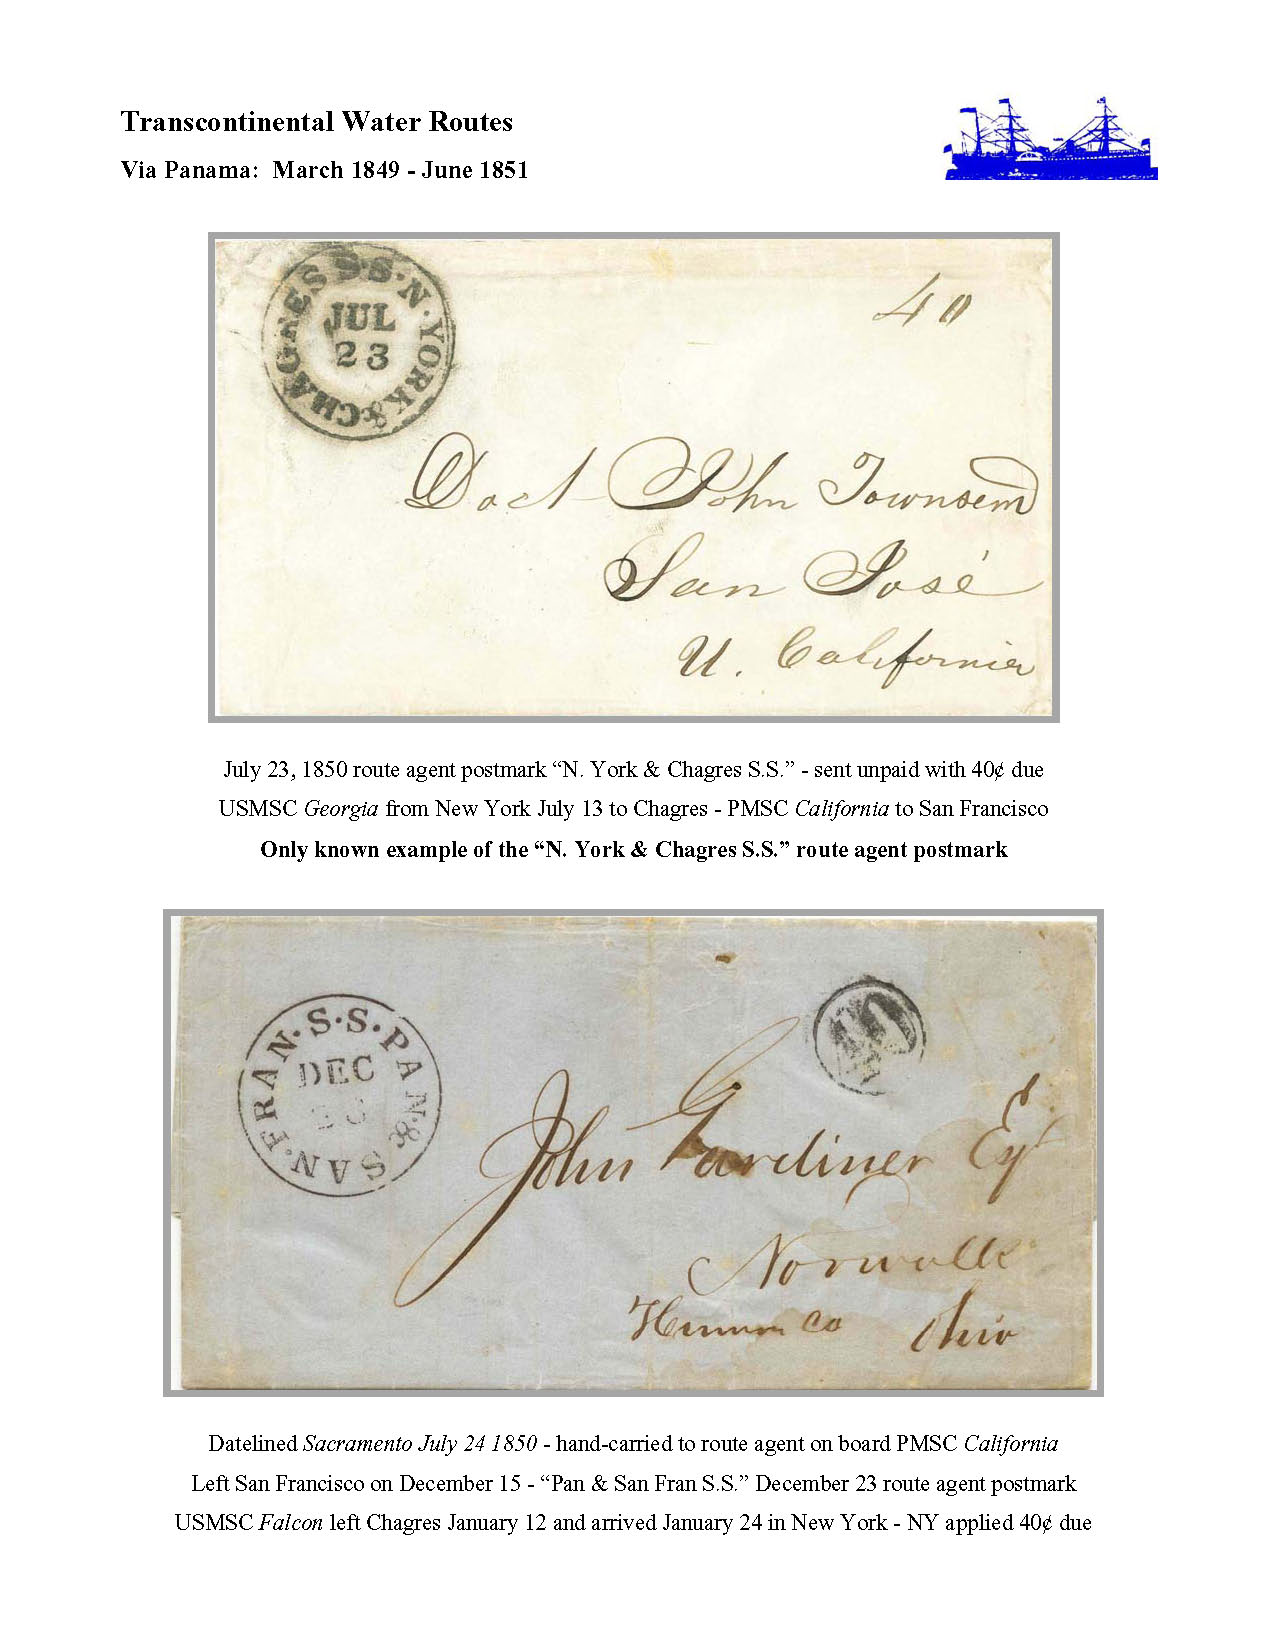 Transcontinental Water Routes
Via Panama: March 1849 - June 1851
CHAGRES S.S. N. YORK &
JUL
23
40
Doct John Townsend
San José
U. California
July 23, 1850 route agent postmark “N. York & Chagres S.S.” - sent unpaid with 40¢ due
USMSC Georgia from New York July 13 to Chagres - PMSC California to San Francisco
Only known example of the “N. York & Chagres S.S.” route agent postmark
PAN. & SAN. FRAN. S.S.
DEC
40
John Gardiner Esqr
Norwalk
Huron Co Ohio
Datelined Sacramento July 24 1850 - hand-carried to route agent on board PMSC California
Left San Francisco on December 15 - “Pan & San Fran S.S.” December 23 route agent postmark
USMSC Falcon left Chagres January 12 and arrived January 24 in New York - NY applied 40¢ due